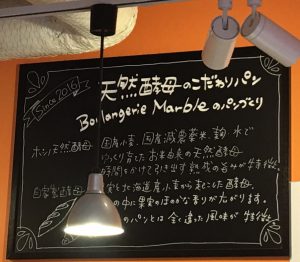 Since 2016
天然酵母のこだわりパン
Boulangerie Marbleのパンづくり
ホシノ天然酵母 国産小麦、国産減農薬米、麹、水で
じっくり育てたお米由来の天然酵母
時間をかけて引き出す熟成の旨みが特徴。
自家製酵母 実と北海道産小麦から起こした酵母。
の中に果実のほのかな香りが広がります。
のパンとは全く違った風味が特徴。